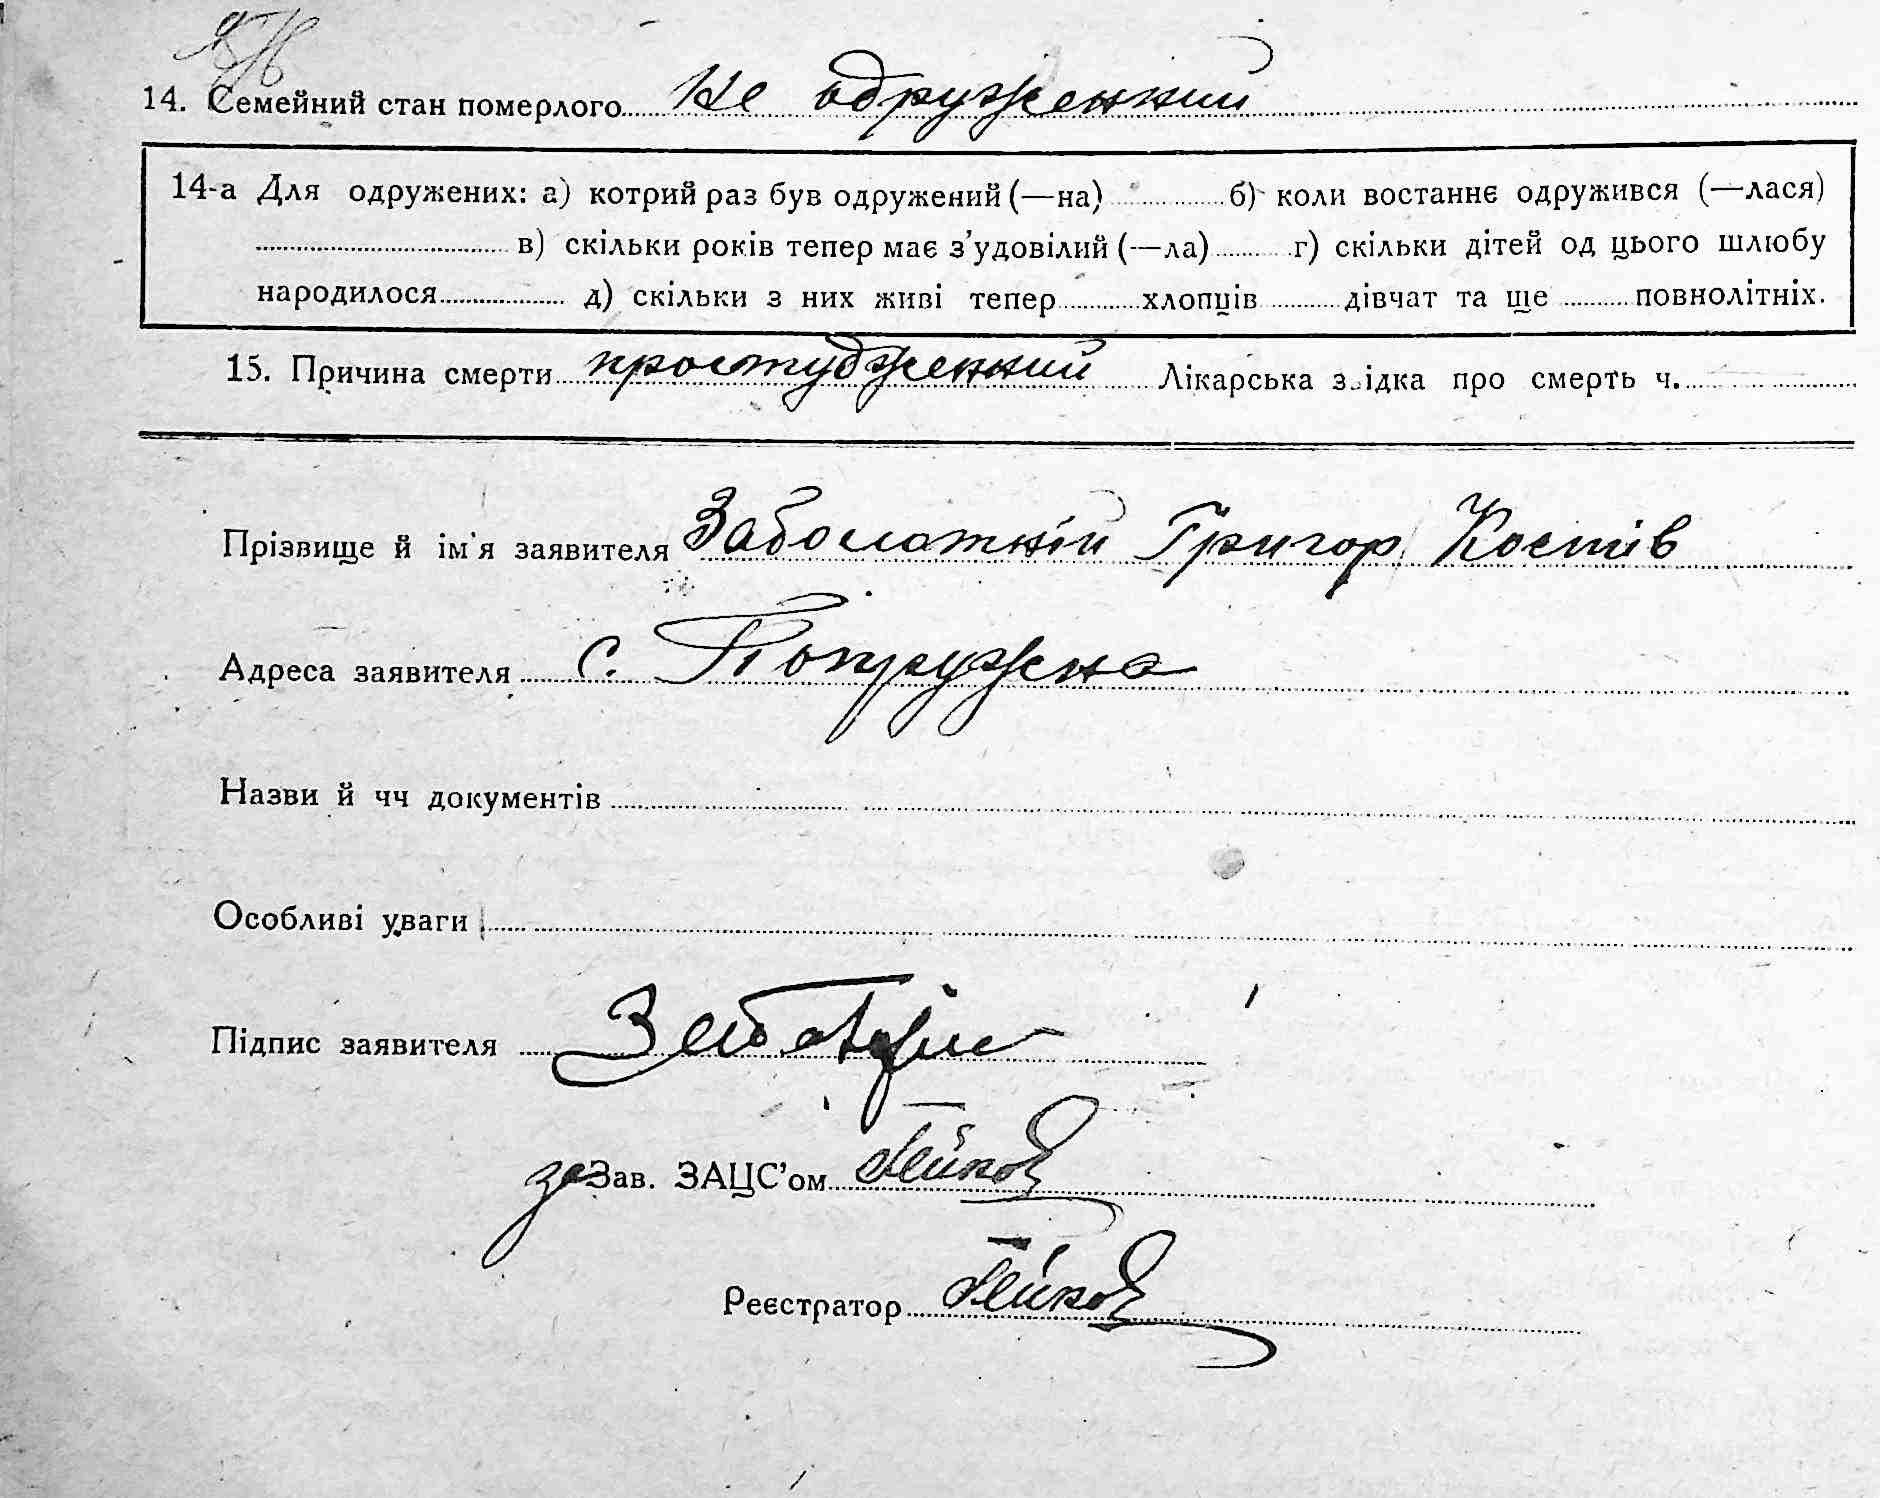 14. Семейний стан померлого Не одруженний
14-а Для одружених: а) котрий раз був одружений (—на) б) коли востаннє одружився (—лася)
в) скільки років тепер має з’удовілий (—ла) г) скільки дітей од цього шлюбу
народилося д) скільки з них живі тепер хлопців дівчат та ще повнолітніх.
15. Причина смерти простудженний Лікарська звідка про смерть ч.
Прізвище й ім’я заявителя Заболотній Григор Костів
Адреса заявителя с. Попружена
Назви й чч документів
Особливі уваги
Підпис заявителя
за Зав. ЗАЦС’ом
Реєстратор